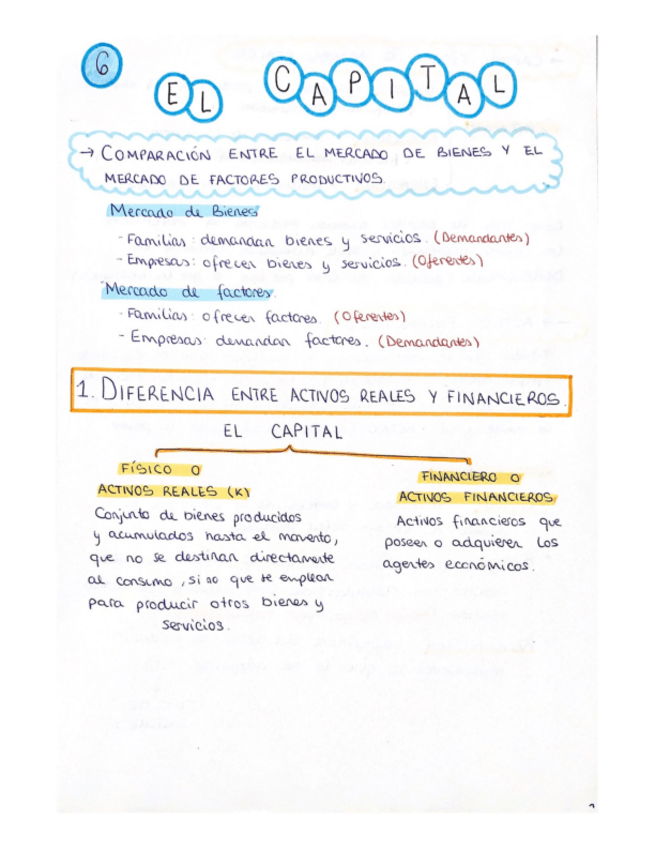 6
EL CAPITAL
→ COMPARACIÓN ENTRE EL MERCADO DE BIENES Y EL
MERCADO DE FACTORES PRODUCTIVOS.
Mercado de Bienes
- Familias: demandan bienes y servicios. (Demandantes)
- Empresas: ofrecen bienes y servicios. (Oferentes)
Mercado de factores.
- Familias: ofrecen factores. (Oferentes)
- Empresas: demandan factores. (Demandantes)
1. DIFERENCIA ENTRE ACTIVOS REALES Y FINANCIEROS.
EL CAPITAL
FÍSICO O
ACTIVOS REALES (K)
Conjunto de bienes producidos
y acumulados hasta el momento,
que no se destinan directamente
al consumo, si no que se emplean
para producir otros bienes y
servicios.
FINANCIERO O
ACTIVOS FINANCIEROS
Activos financieros que
poseen o adquieren los
agentes económicos.